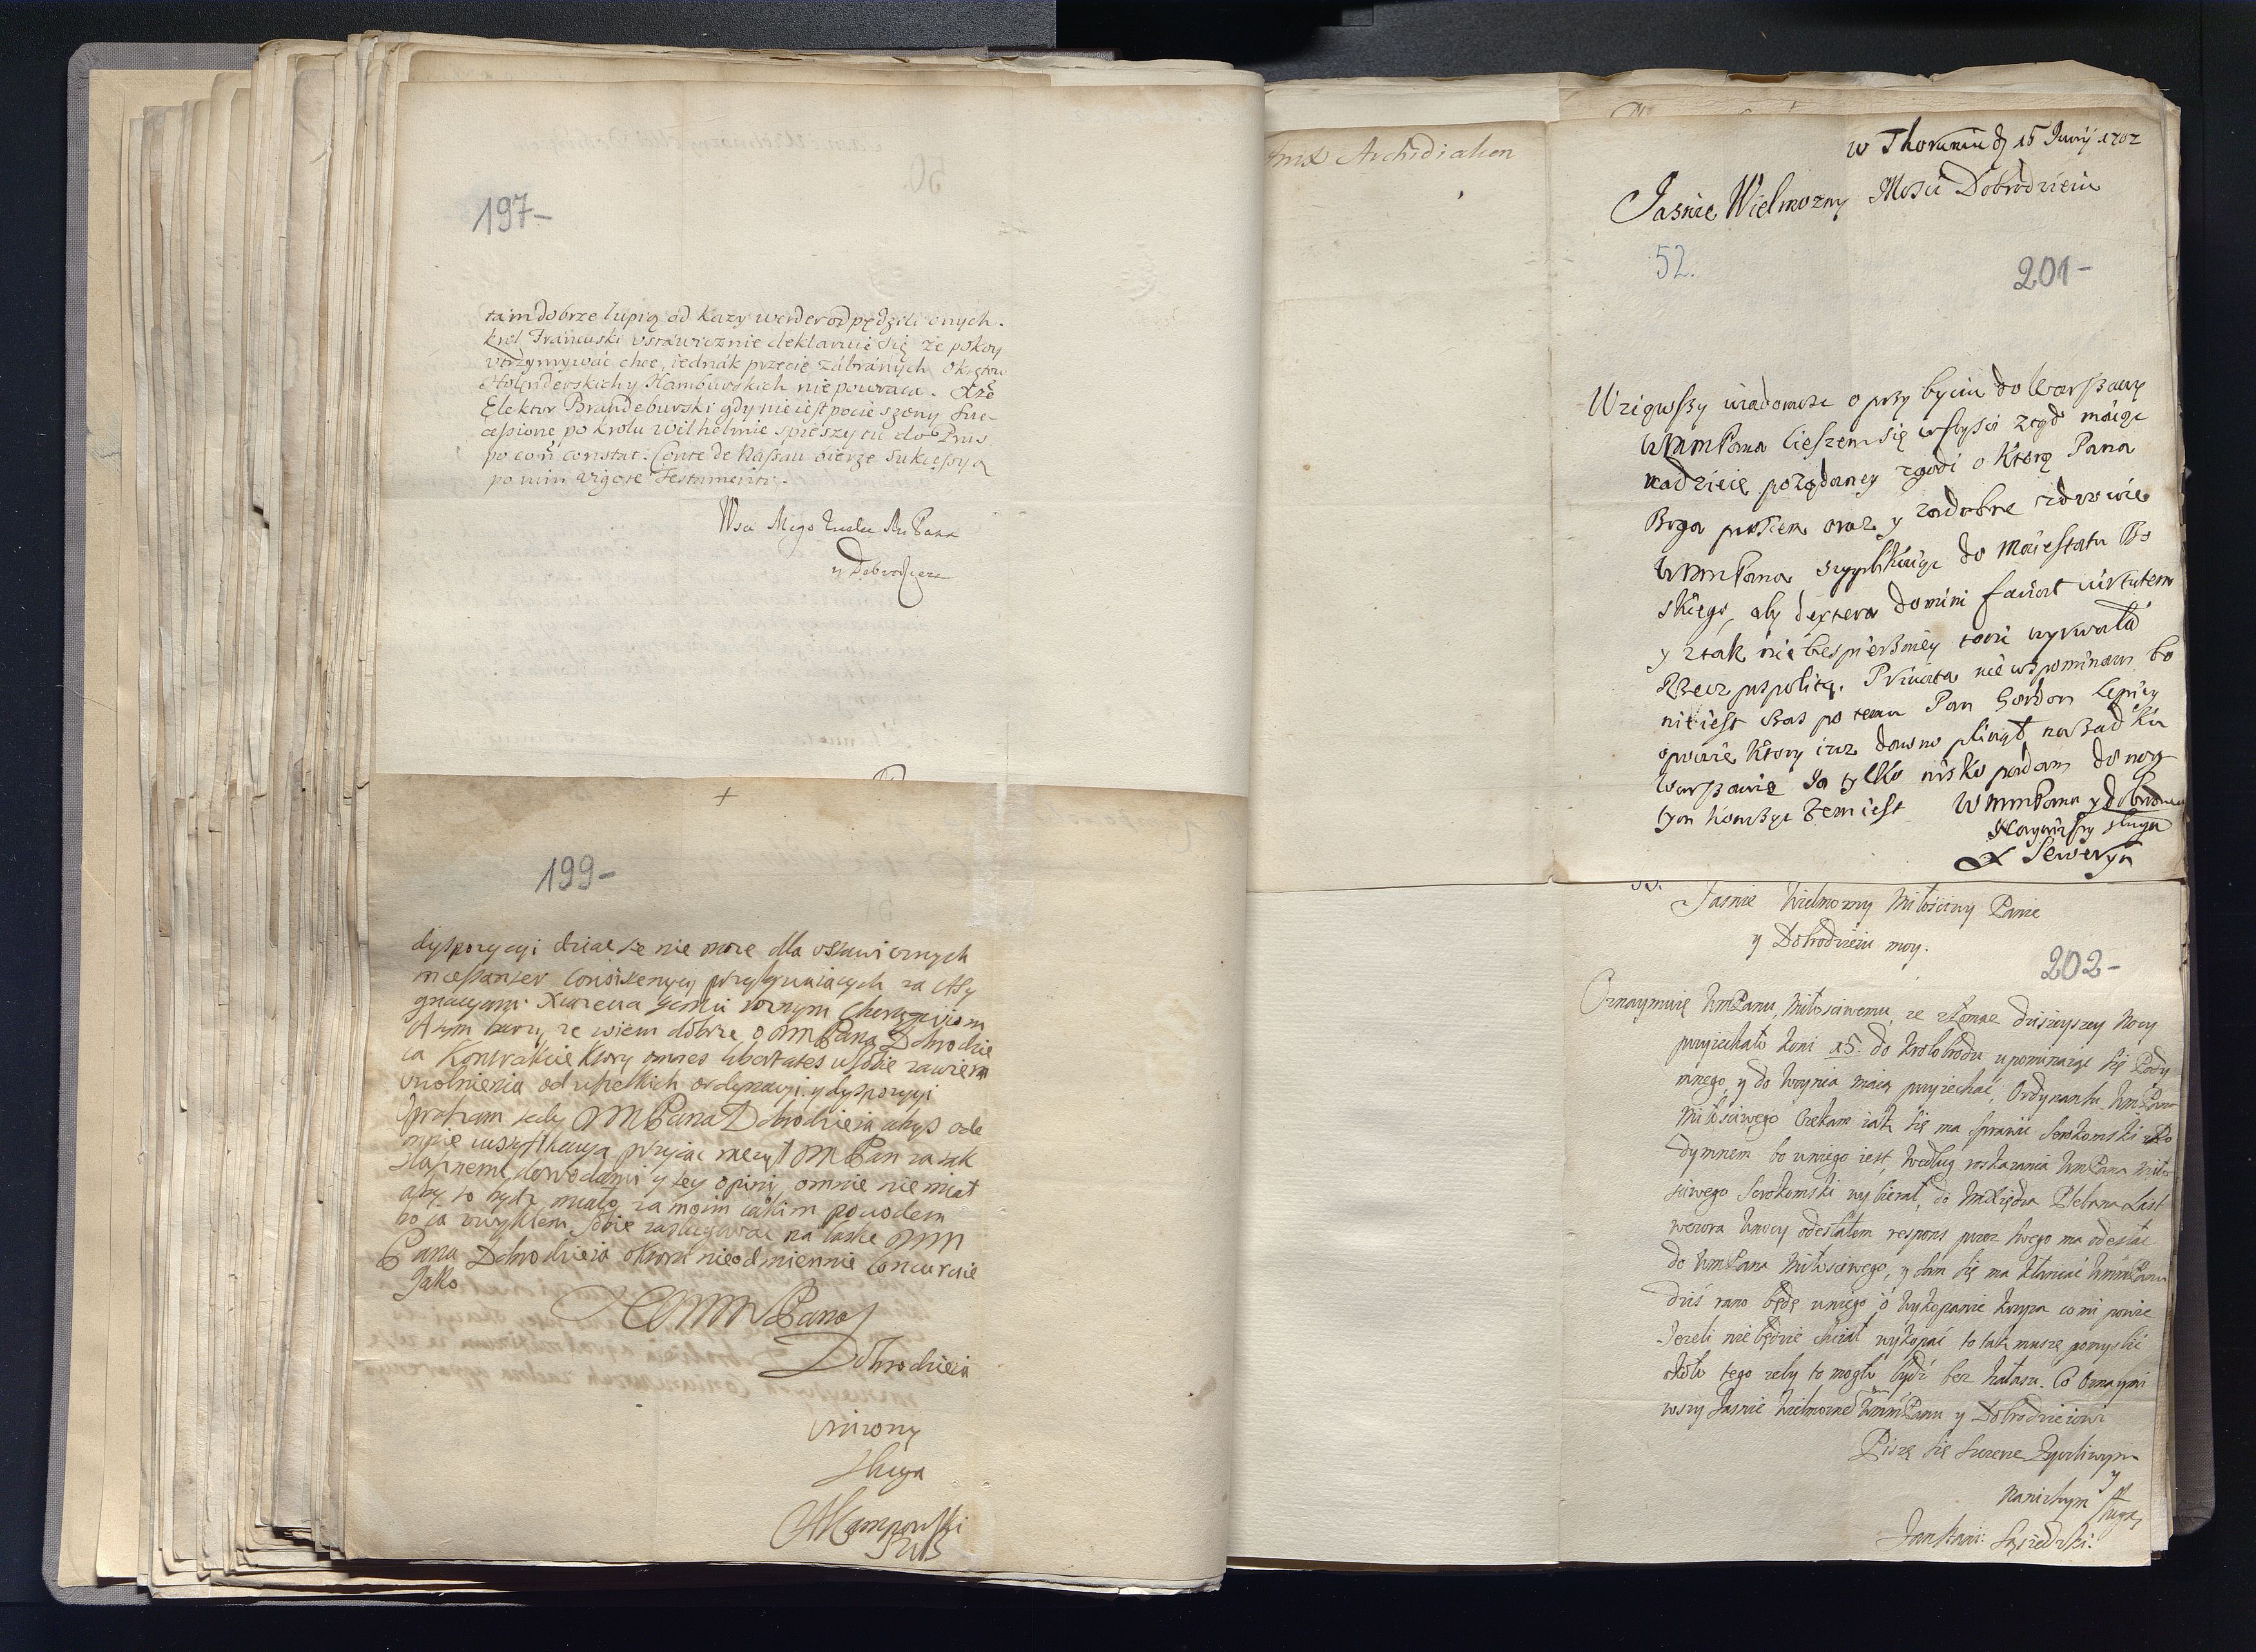 197-
tam dobrze łupią od Kazy werder odpędzili onych.
Krol Francuski vstáwicznie deklaruie się że pokoy
vtrzymywáć chce, iednák przecię zábránych okrętow
Holenderskich y Hamburskich nie powraca. Xże
Elektor Brandeburski gdy nie iest pocieszony Suc-
cessione po krolu Wilhelmie spieszy tu do Prus
po coń constat: Conte de Nassau bierze sukcessyą
po nim vigore Testamenti.
Wsci Mego Pana
y Dobrodzieia
+
199-
dyspozycyi dziac się nie moze dla vstawicznych
za Assy
gnacyami
A tym wiem dobrze o MMPana Dobrodzie
ia Kontrakcie Ktory omnes libertates w sobie zawiera
vwolnienia od wszelkich ordynacyi y dyspozycyi
Upraszam tedy MMPana Dobrodzieia abys ode
mnie przyiac raczył MMPan za tak
dowodami y tey opinii omnie nie miał
aby to bydz miało za moim iakim powodem
bo ia zwykłem sobie zasługiwac na łaskę MM
Pana Dobrodzieia ktora nieodmiennie
Jako
WMMPana
Dobrodzieia
Vnizony
Sługa
Archidiakon
w Thoruniu d 15 Junij 1702
Jasnie Wielmozny Mosci Dobrodzieiu
52.
201-
Wziąwszy wiadomosc o przybyciu do Warszawy
WMMPana Cieszem się wszyscy ztąd maiąc
nadzieię pożądaney zgodi o Ktorą Pana
Boga proszem oraz y zadobre zdrowie
WMMPana supplikuiąc do Maiestatu Bo
skiego, aby dextera Domini faciat virtutem
y ztak niebespieszney toni wyrwała
Rzeczpospolitą. Privata nie wspominam bo
nieiest czas po temu Pan Gordon Lepiey
opowie Ktory iuz dawno płinął nazad Ku
Warszawie Ja tylko nisko padam do nog
tym Kończąc żem iest WMMPana y Dobrodzieia
Nayniższy sługa
X Seweryn
Jasnie Wielmozny Miłosciwy Panie
y Dobrodzieiu moy.
202-
Oznaymuię WmPanu Miłosciwemu, ze dzisieyszey Nocy
przyiechało koni 15. do upominaiąc się Pody
mnego, y do maią przyiechac, Ordynansu WmPana
Miłosciwego Czekam iak się ma sprawic Serokomski z Po
dymnem bo uniego iest, według roskazania WmPana Miło
sciwego Serokomski wybierał, do Xiędza Plebana List
wczora odesłałem respons przez swego ma odesłac
do WmPana Miłosciwego, y sam się ma kłaniac WmMPanu
dzis rano będę uniego o wykopanie co mi powie
Jezeli nie będzie chciał wykopac to tak muszę pomyslic
około tego zeby to mogło bydz bez hałasu. Co Oznaymi
wszy Jasnie Wielmoznemu WmMPanu y Dobrodzieiowi
Piszę się szczerze Zyczliwym
y
Nanizszym sługą